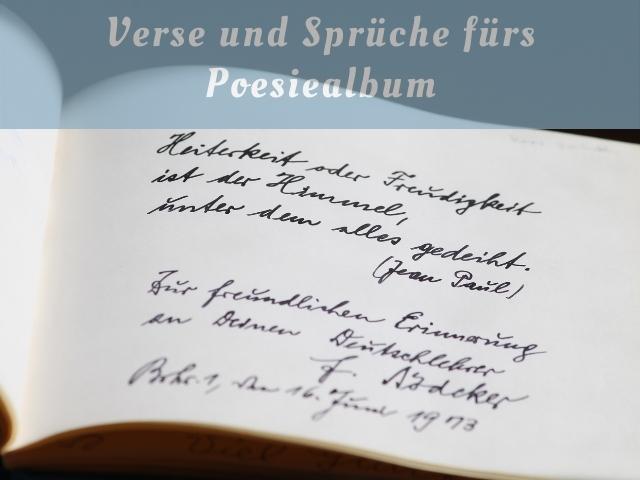 Verse und Sprüche fürs
Poesiealbum
Heiterkeit oder Freudigkeit
ist der Himmel,
unter dem alles gedeiht.
(Jean Paul)
Zur freundlichen Erinnerung
an Deinen Deutschlehrer
F.
den 16. Juni 1973
Viel